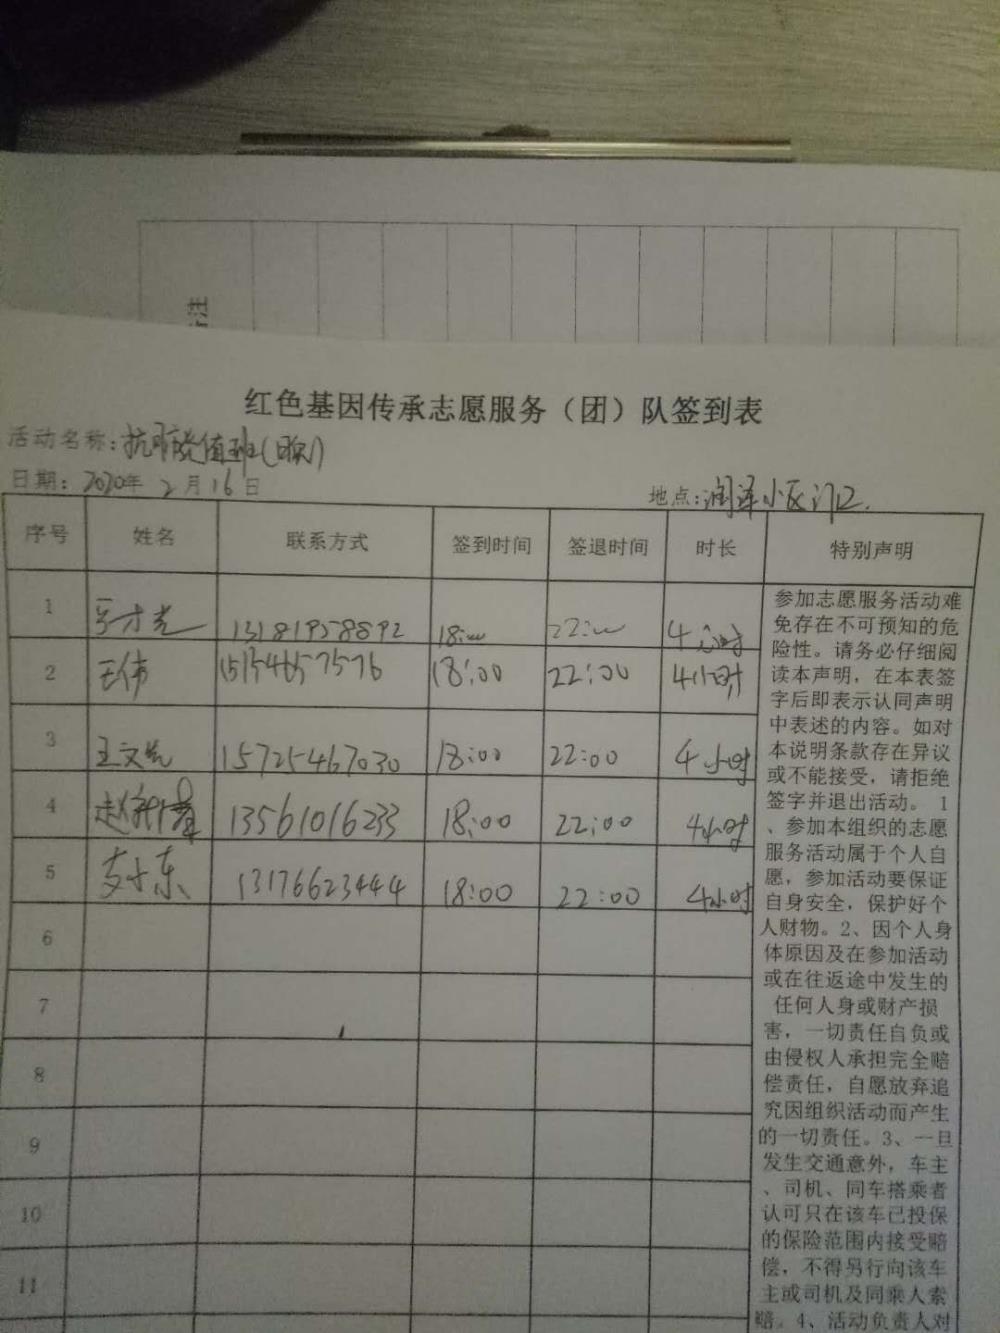 备注
红色基因传承志愿服务（团）队签到表
活动名称：抗
日期：2020年 2月16日
地点：润泽小区门口.
序号 姓名 联系方式 签到时间 签退时间 时长 特别声明
1 13181958892 18:00 22:00 4小时
2 王伟 15154657576 18:00 22:00 4小时
3 王文 15725467030 18:00 22:00 4小时
4 赵 13561016233 18:00 22:00 4小时
5 东 13176623444 18:00 22:00 4小时
6
7
8
9
10
11
参加志愿服务活动难
免存在不可预知的危
险性。请务必仔细阅
读本声明，在本表签
字后即表示认同声明
中表述的内容。如对
本说明条款存在异议
或不能接受，请拒绝
签字并退出活动。 1
、参加本组织的志愿
服务活动属于个人自
愿，参加活动要保证
自身安全，保护好个
人财物。2、因个人身
体原因及在参加活动
或在往返途中发生的
任何人身或财产损
害，一切责任自负或
由侵权人承担完全赔
偿责任，自愿放弃追
究因组织活动而产生
的一切责任。3、一旦
发生交通意外，车主
、司机、同车搭乘者
认可只在该车已投保
的保险范围内接受赔
偿，不得另行向该车
主或司机及同乘人索
赔。4、活动负责人对